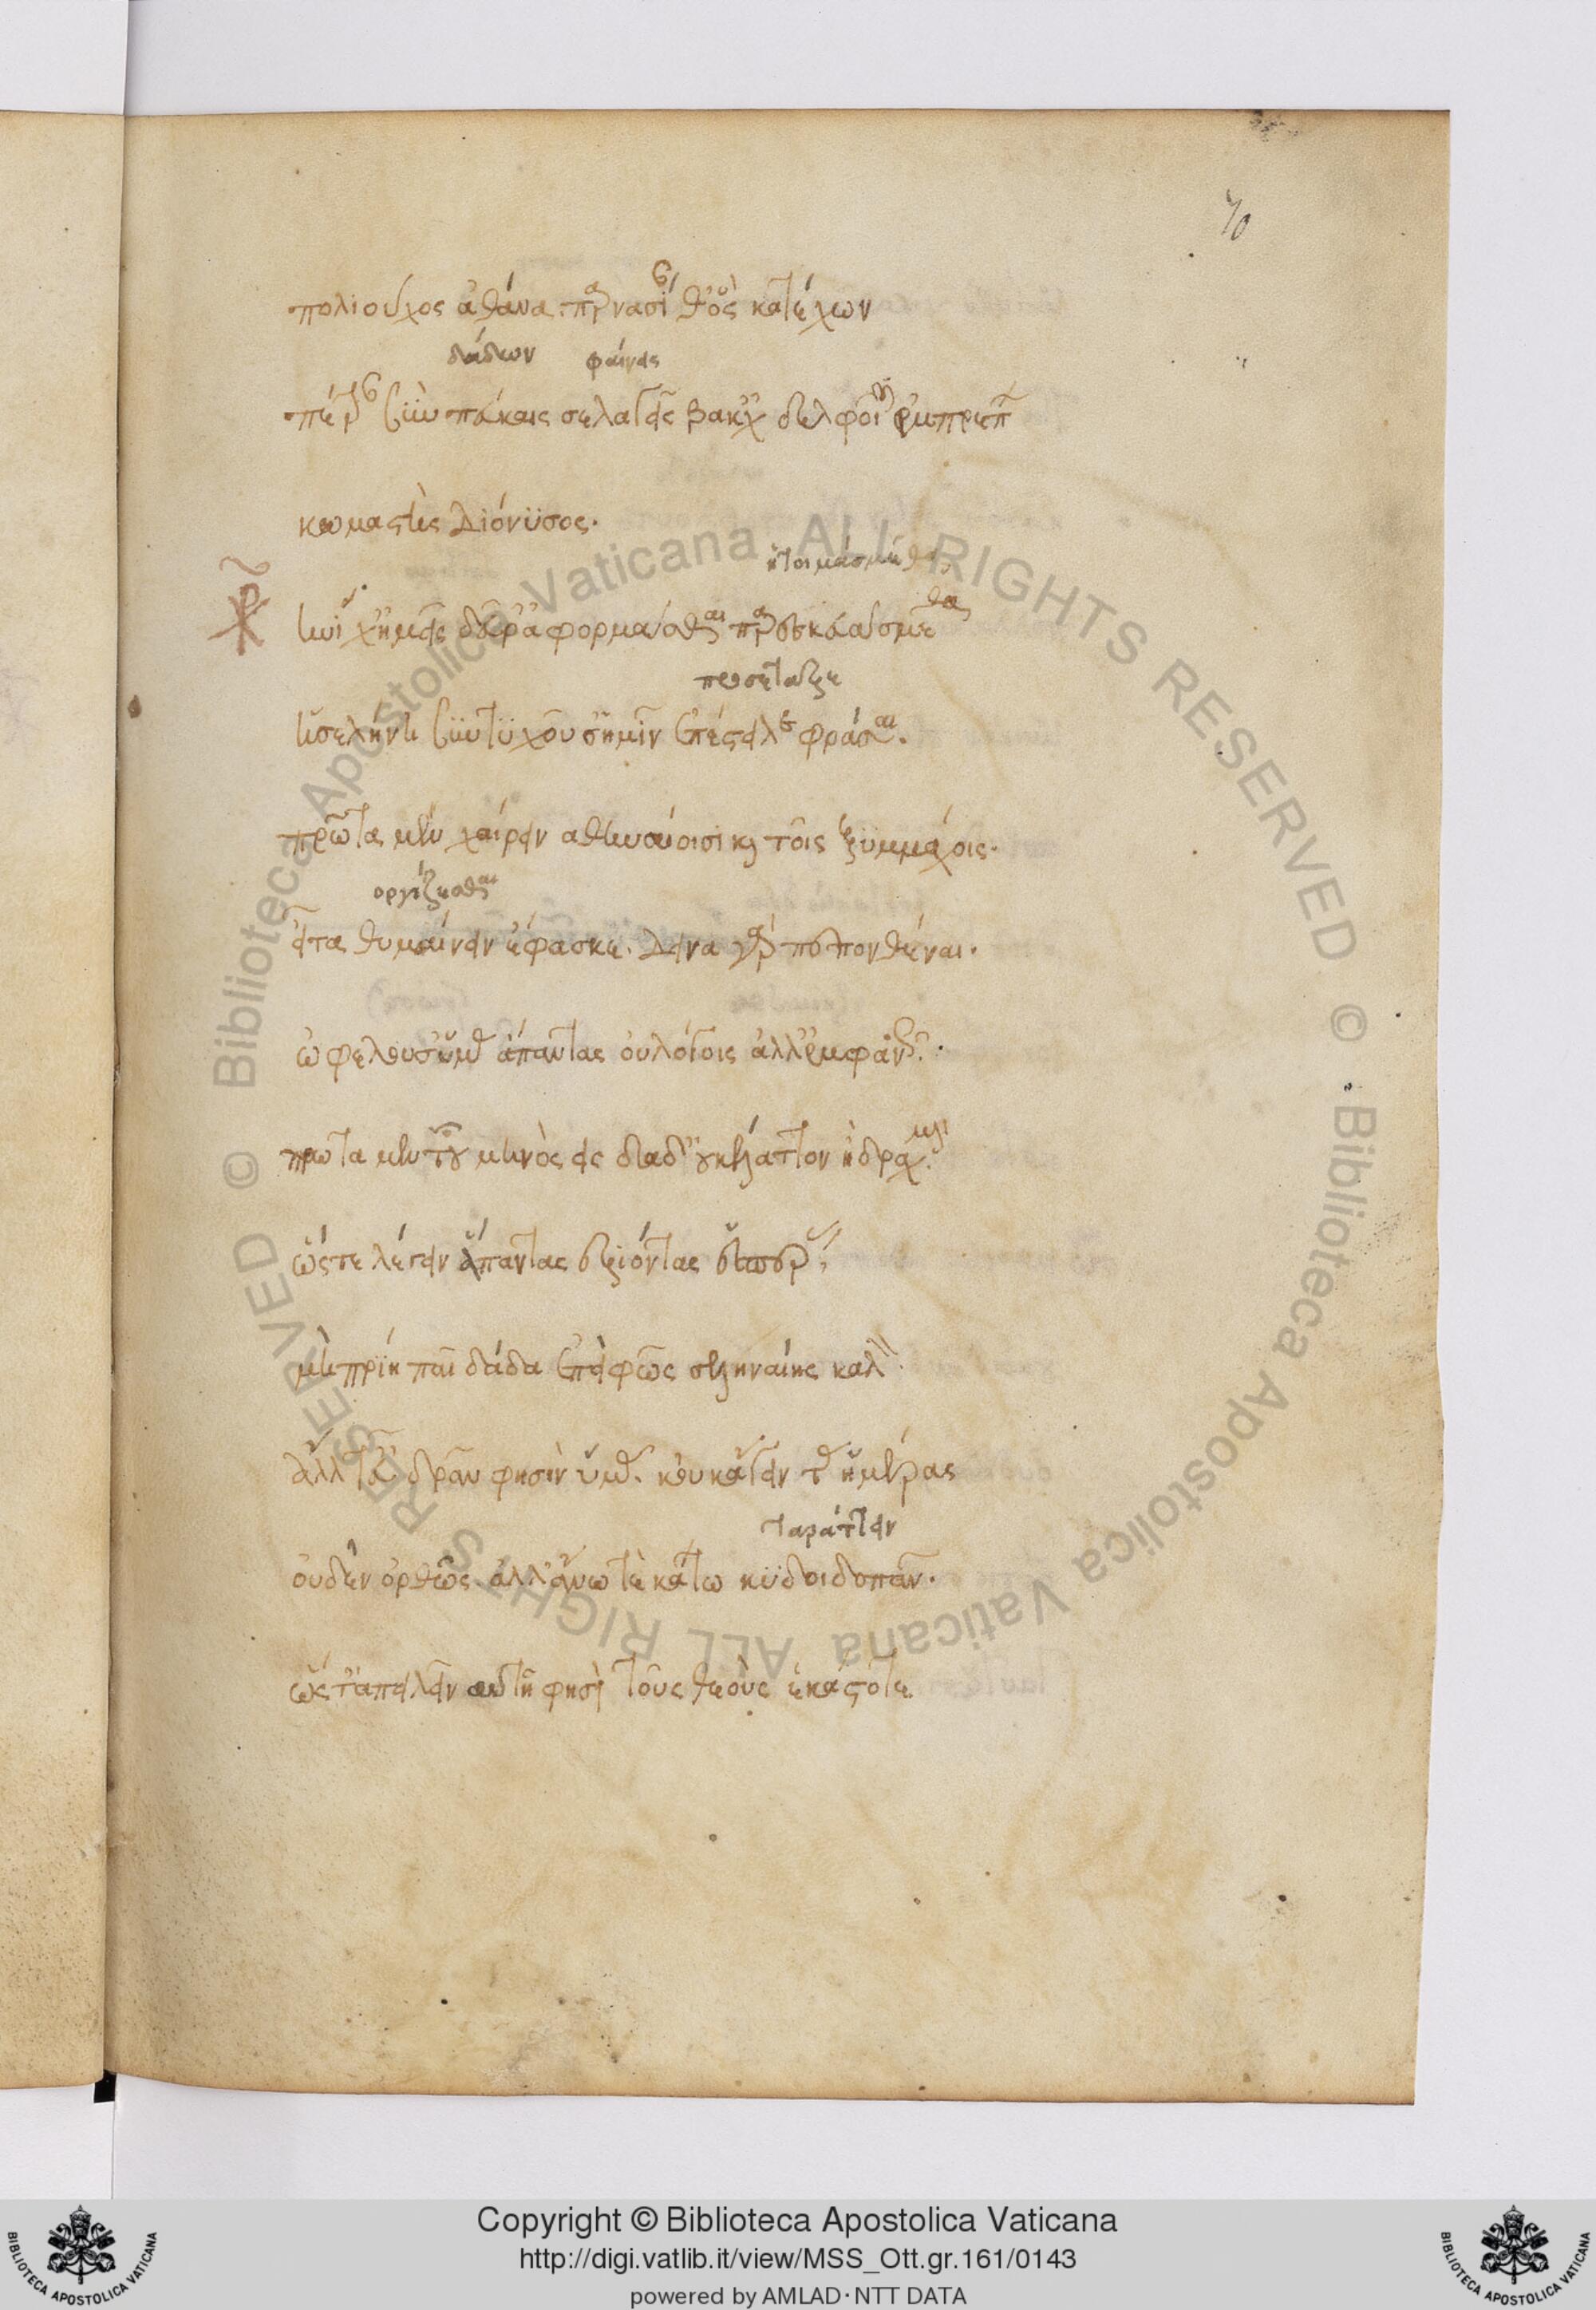 70
πολιοῦχος ἀθάνα· παρνασίαν θ' ὃς κατέχων
δάδων φαίνεις
πέτραν σὺν πεύκαις σελαγεῖ βάκχαις δελφίσιν ἐμπρέπων
κωμαστὴς Διόνυσος·
ἡτοιμάσμεθα
ἡνίχ' ἡμεῖς δεῦρ' ἀφορμᾶσθαι παρεσκευάσμεθα
προσέταξε
ἡ σελήνη συντυχοῦσ' ἡμῖν ἐπέστειλε φράσαι·
πρῶτα μὲν χαίρειν ἀθηναίοισι καὶ τοῖς ξυμμάχοις·
ὀργίζεσθαι
εἶτα θυμαίνειν ἔφασκε· δεινὰ γὰρ πεπονθέναι·
ὠφελοῦσ' ὑμᾶς ἅπαντας οὐ λόγοις ἀλλ' ἐμφανῶς·
πρῶτα μὲν τοῦ μηνὸς εἰς δᾷδ' οὐκ ἔλαττον ἢ δραχμήν·
ὥστε λέγειν ἅπαντας ἐξιόντας ἑσπέρας·
μὴ πρίῃ παῖ δᾷδα ἐπεὶ φῶς σεληναίης καλόν·
ἄλλα τ' εὖ δρᾶν φησὶν ὑμᾶς· κοὐκ ἄγειν τὰς ἡμέρας
ταράττειν
οὐδὲν ὀρθῶς· ἀλλ' ἄνω τε κάτω κυδοιδοπᾶν·
ὥστ' ἀπειλεῖν αὐτῇ φησὶ τοὺς θεοὺς ἑκάστοτε
Copyright © Biblioteca Apostolica Vaticana
http://digi.vatlib.it/view/MSS_Ott.gr.161/0143
powered by AMLAD · NTT DATA
BIBLIOTECA APOSTOLICA VATICANA
BIBLIOTECA APOSTOLICA VATICANA
© Biblioteca Apostolica Vaticana ALL RIGHTS RESERVED © Biblioteca Apostolica Vaticana ALL RIGHTS RESERVED